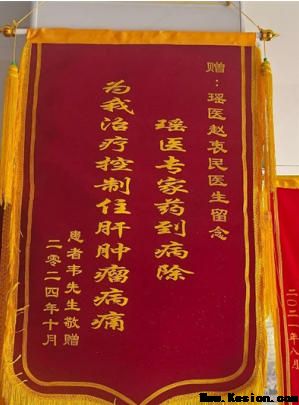 赠：瑶医赵衷民医生留念
瑶医专家药到病除
为我治疗控制住肝肿瘤病痛
患者韦先生敬赠
二零二四年十月
二〇二一年八月
Www.Kesion.com